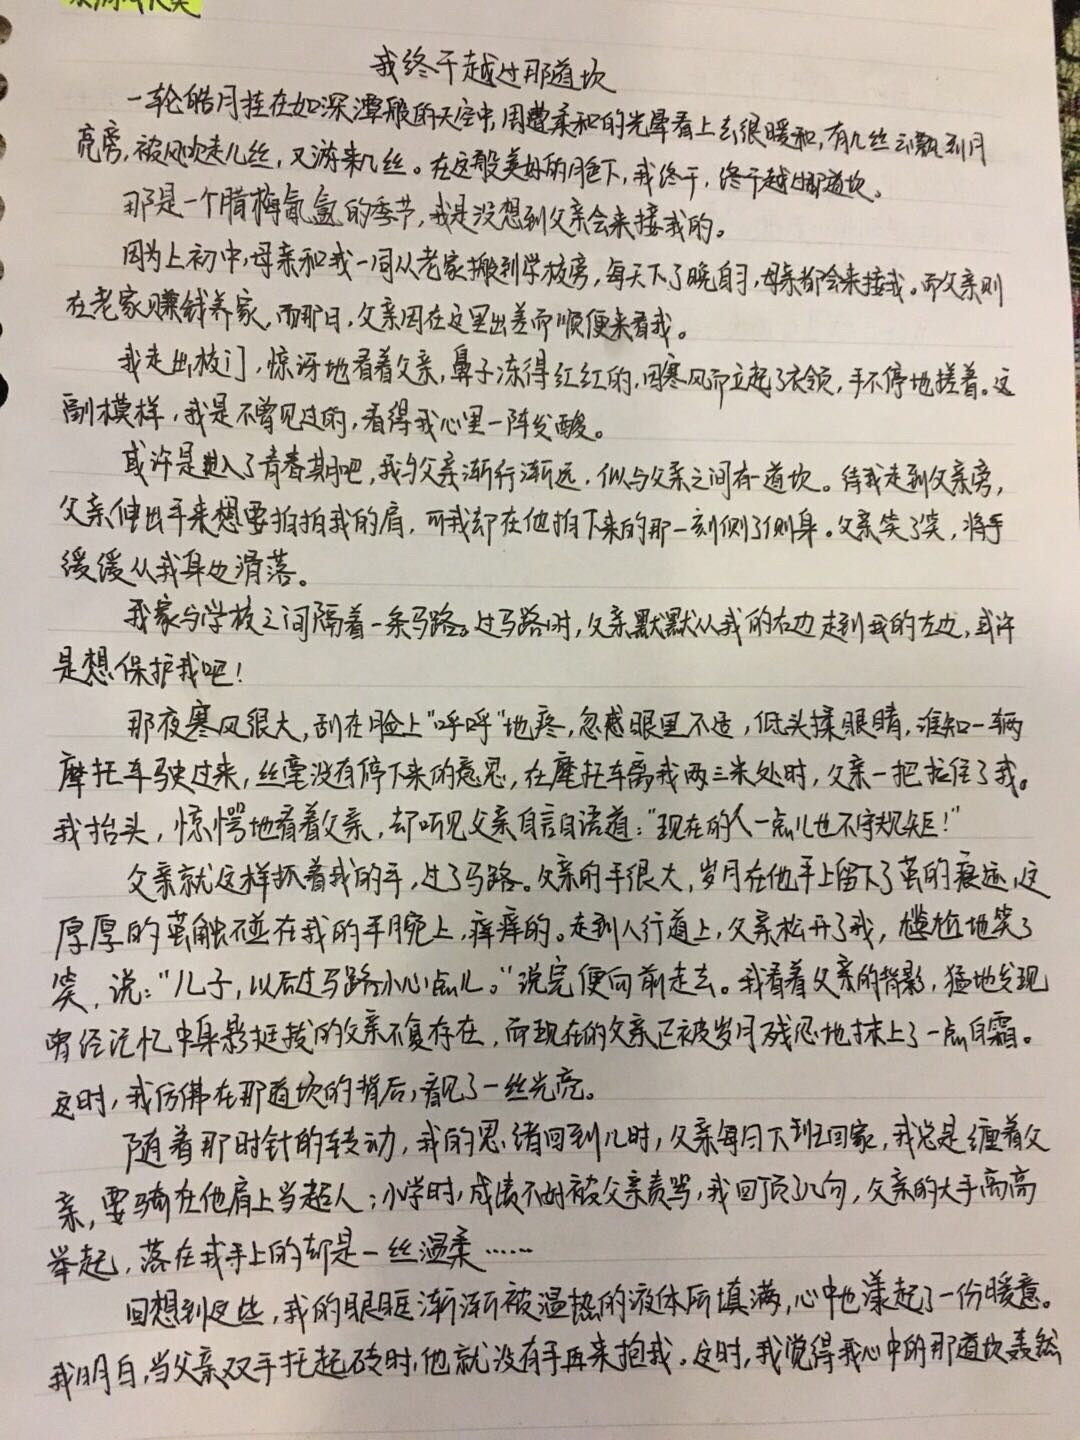 我终于越过那道坎
一轮皓月挂在如深潭般的天空中,周遭柔和的光晕看上去很暖和,有几丝云飘到月
亮旁,被风吹走几丝,又游来几丝。在这般美好的月色下,我终于,终于越过那道坎。
那是一个腊梅氤氲的季节,我是没想到父亲会来接我的。
因为上初中,母亲和我一同从老家搬到学校旁,每天下了晚自习,母亲都会来接我。而父亲则
在老家赚钱养家,而那日,父亲因在这里出差而顺便来看我。
我走出校门,惊讶地看着父亲,鼻子冻得红红的,因寒风而立起了衣领,手不停地搓着。这
副模样,我是不曾见过的,看得我心里一阵发酸。
或许是进入了青春期吧,我与父亲渐行渐远,似与父亲之间有一道坎。待我走到父亲旁,
父亲伸出手来想要拍拍我的肩,而我却在他拍下来的那一刻侧了侧身。父亲笑了笑,将手
缓缓从我身边滑落。
我家与学校之间隔着一条马路。过马路时,父亲默默从我的右边走到我的左边,或许
是想保护我吧!
那夜寒风很大,刮在脸上"呼呼"地疼,忽感眼里不适,低头揉眼睛,谁知一辆
摩托车驶过来,丝毫没有停下来的意思,在摩托车离我两三米处时,父亲一把拉住了我。
我抬头,惊愕地看着父亲,却听见父亲自言自语道:"现在的人一点儿也不守规矩!"
父亲就这样抓着我的手,过了马路。父亲的手很大,岁月在他手上留下了茧的痕迹,这
厚厚的茧触碰在我的手腕上,痒痒的。走到人行道上,父亲松开了我,尴尬地笑了
笑,说:"儿子,以后过马路小心点儿。"说完便向前走去。我看着父亲的背影,猛地发现
曾经记忆中身影挺拔的父亲不复存在,而现在的父亲已被岁月残忍地抹上了一点白霜。
这时,我仿佛在那道坎的背后,看见了一丝光亮。
随着那时针的转动,我的思绪回到儿时,父亲每日下班回家,我总是缠着父
亲,要骑在他肩上当超人;小学时,成绩不好被父亲责骂,我回顶了几句,父亲的大手高高
举起,落在我手上的却是一丝温柔……
回想到这些,我的眼眶渐渐被温热的液体所填满,心中也漾起了一份暖意。
我明白,当父亲双手托起砖时,他就没有手再来抱我。这时,我觉得我心中的那道坎轰然